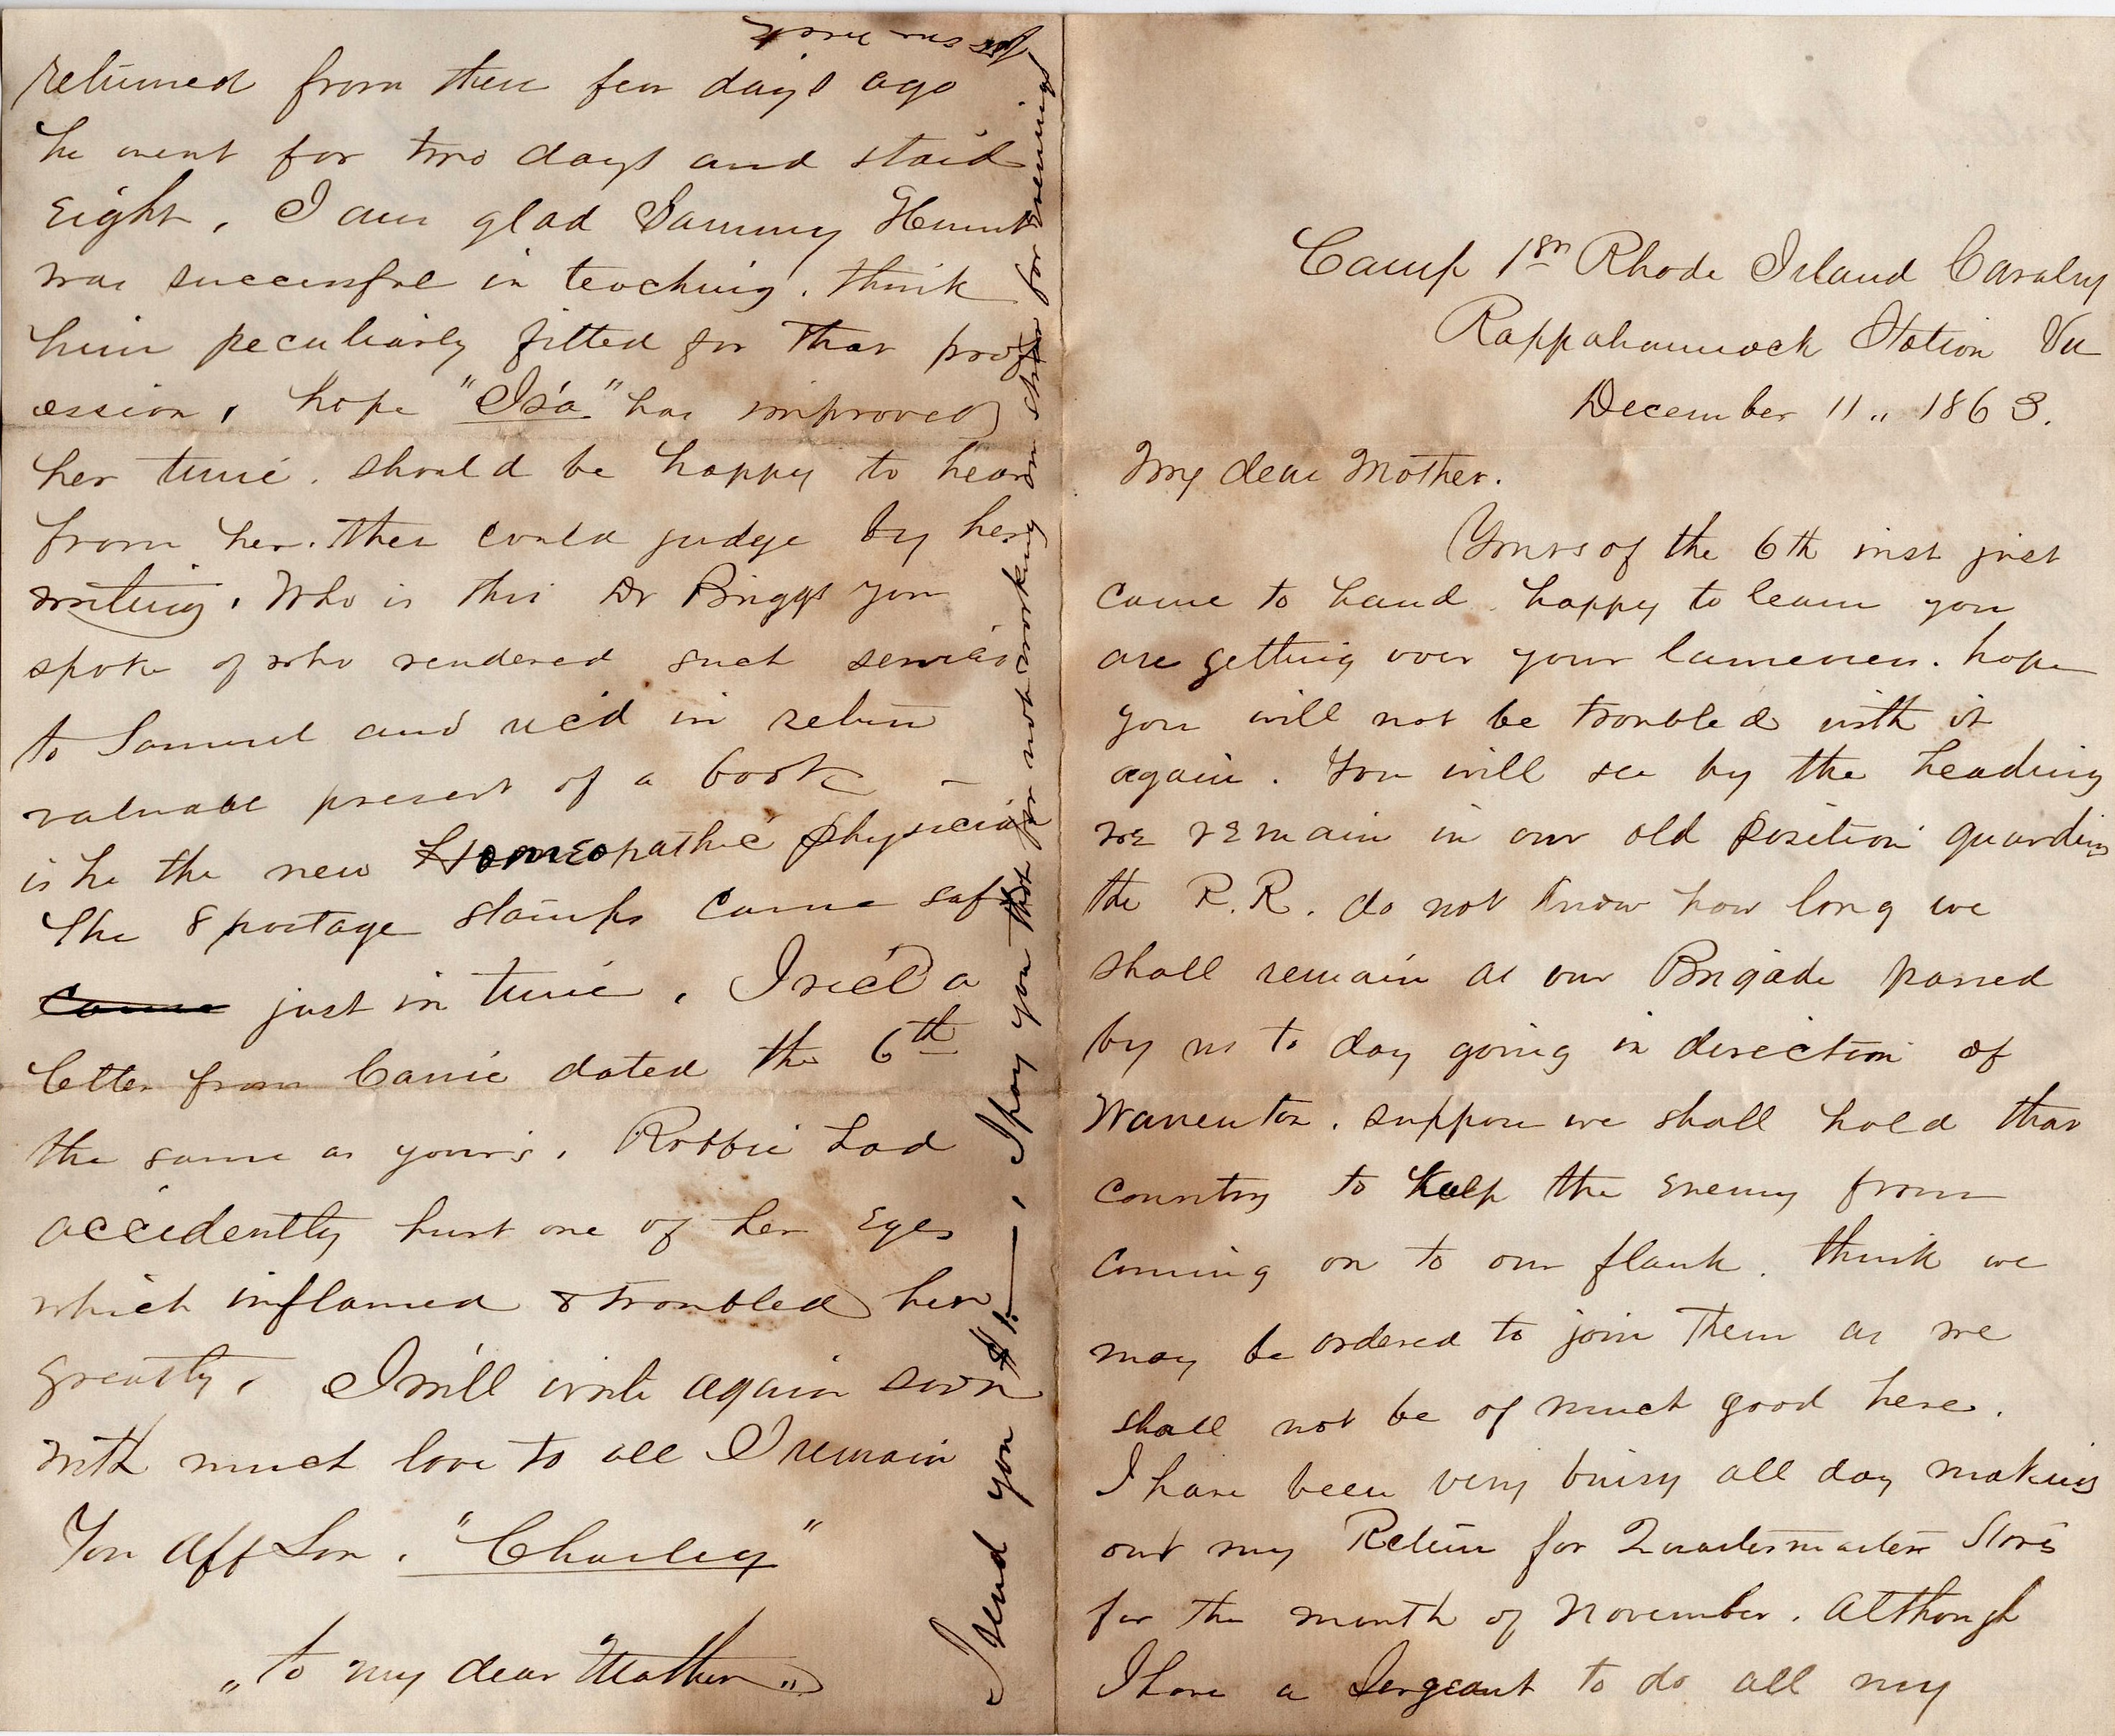 Camp 1st Rhode Island Cavalry
Rappahannock Station Va
December 11,, 1863.
My dear Mother.
Yours of the 6th inst just
came to hand. happy to learn you
are getting over your lameness. hope
you will not be troubled with it
again. You will see by the heading
we remain in our old position guarding
the R.R. do not know how long we
shall remain as our Brigade passed
by us to day going in direction of
Warrenton. suppose we shall hold that
country to keep the enemy from
coming on to our flank. think we
may be ordered to join them as we
shall not be of much good here.
I have been very buisy all day making
out my Return for Quartermasters Stores
for the month of November. Although
I have a Sergeant to do all my
returned from there few days ago
he went for two days and staid
eight. I am glad Sammy Hunt
was successful in teaching. think
him peculiarly fitted for that prof
ession, hope "Isa" has improved
her time. should be happy to hear
from her. then could judge by her
writing. Who is this Dr Briggs you
spoke of who rendered such services
to Samuel and rec'd in return
valuable present of a book
is he the new Homeopathic physician
The 8 postage stamps came safe
came just in time. I rec'd a
letter from Carrie dated the 6th
the same as yours. Robbie had
accidently hurt one of her eyes
which inflamed & troubled her
greatly. I will write again soon
with much love to all I remain
Your Aff Son. "Charley"
"to my dear Mother"
I send you $1.—. I pay you that for not working on shirt for evenings
for one week